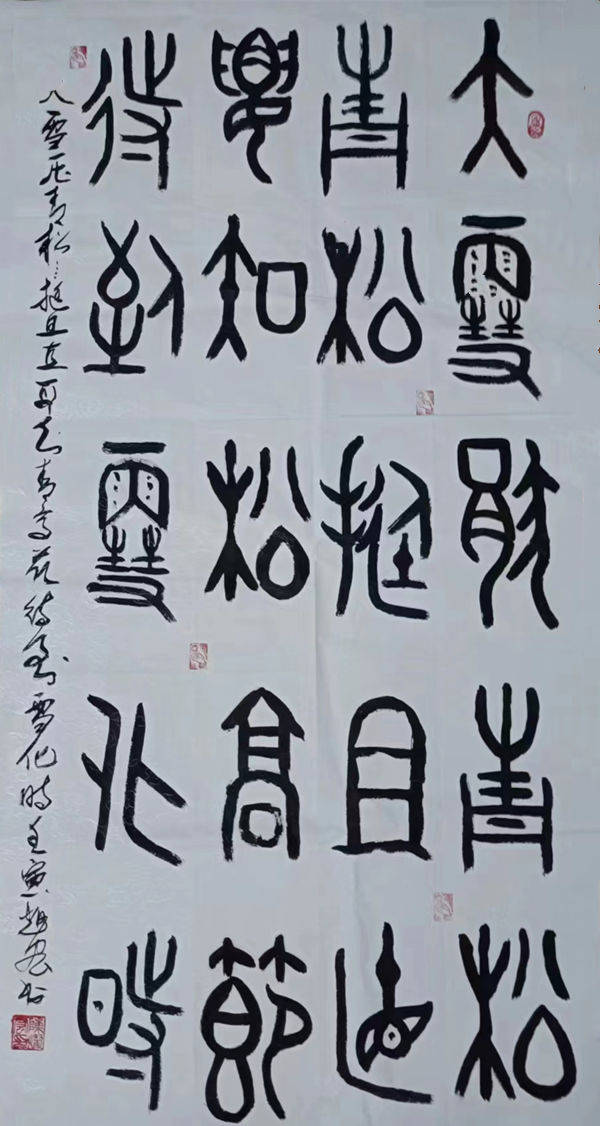 大雪猒青松
青松挺且直
要知松高節
待到雪化時
大雪压青松〻挺且直要知高花待到雪化時壬寅趙书